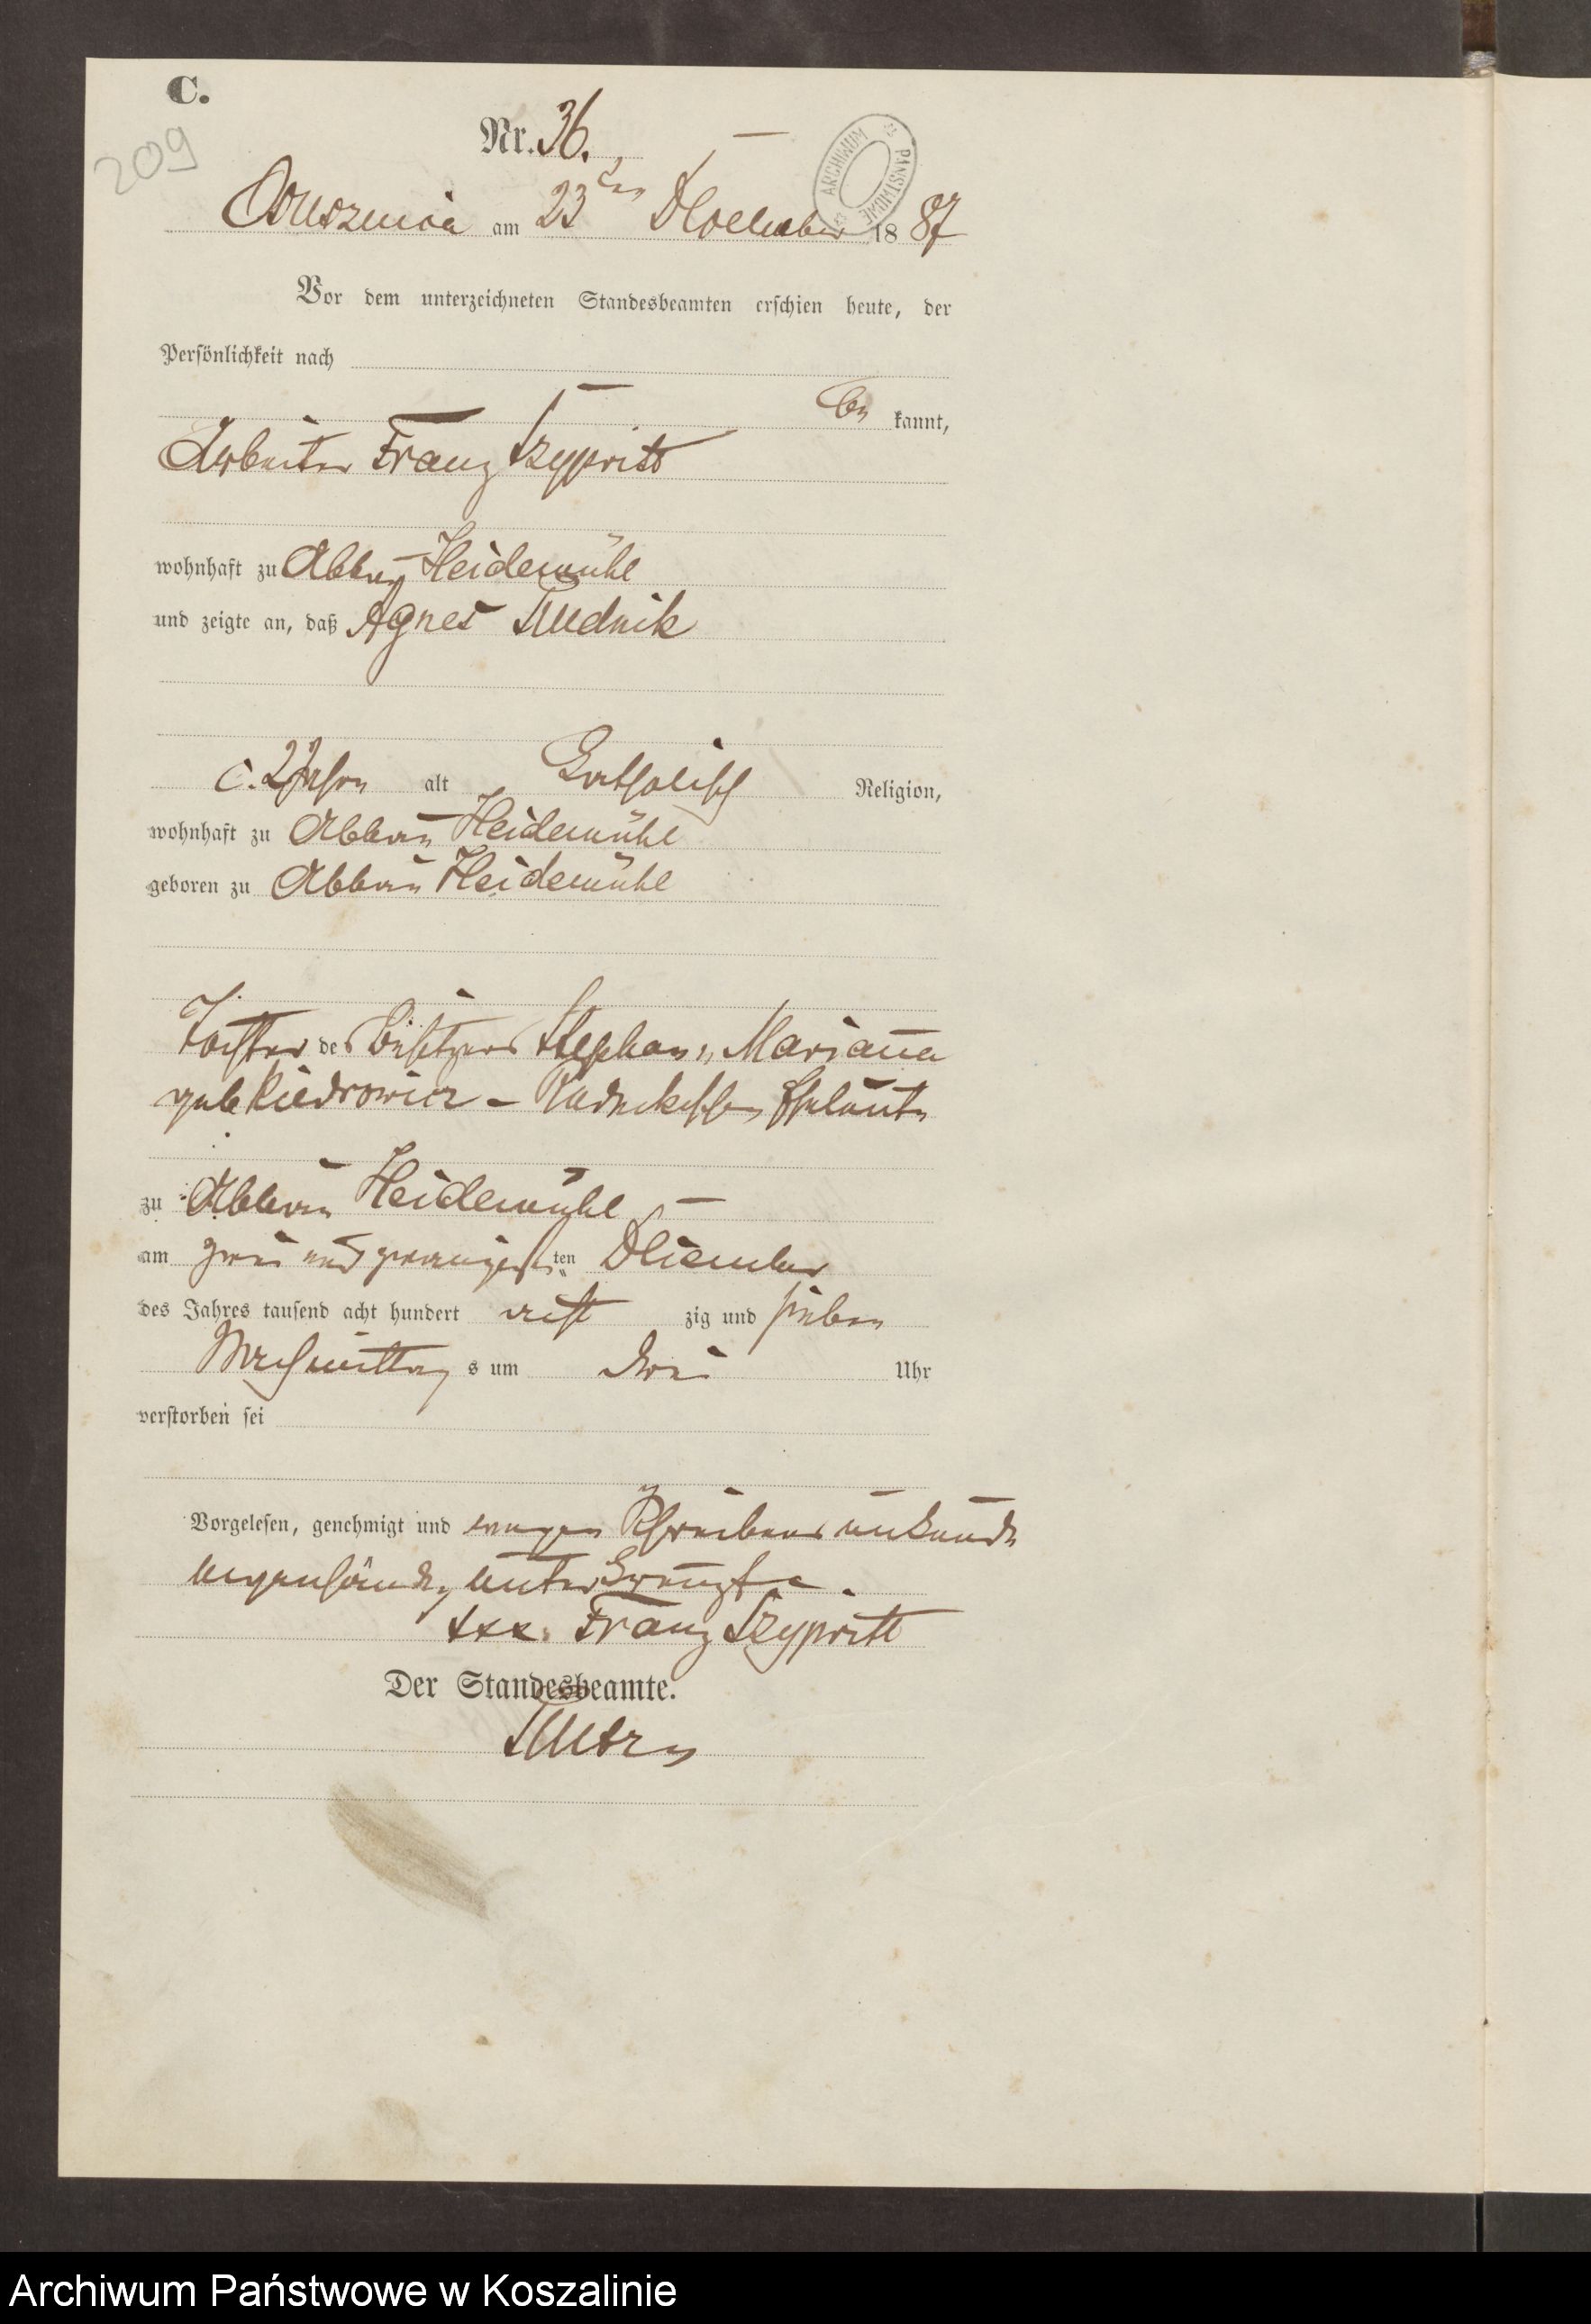 C.
209
Nr. 36.
ARCHIWUM PAŃSTWOWE
am 23ten 1887
Vor dem unterzeichneten Standesbeamten erschien heute, der
Persönlichkeit nach
be kannt,
Arbeiter Franz Szypritt
wohnhaft zu Abbau Heidemühl
und zeigte an, daß Agnes Rudnik
c. 2 Jahr alt katholisch Religion,
wohnhaft zu Abbau Heidemühl
geboren zu Abbau Heidemühl
Tochter des Besitzers Stephan u Marianna
geb. Kiedrowicz - Rudnikschen Eheleute
zu Abbau Heidemühl
am zwei und zwanzigsten ten
des Jahres tausend acht hundert acht zig und sieben
Nachmittag s um drei Uhr
verstorben sei
Vorgelesen, genehmigt und wegen Schreibens unkunde
unterkreuzt
xxx. Franz Szypritt
Der Standesbeamte.
Archiwum Państwowe w Koszalinie